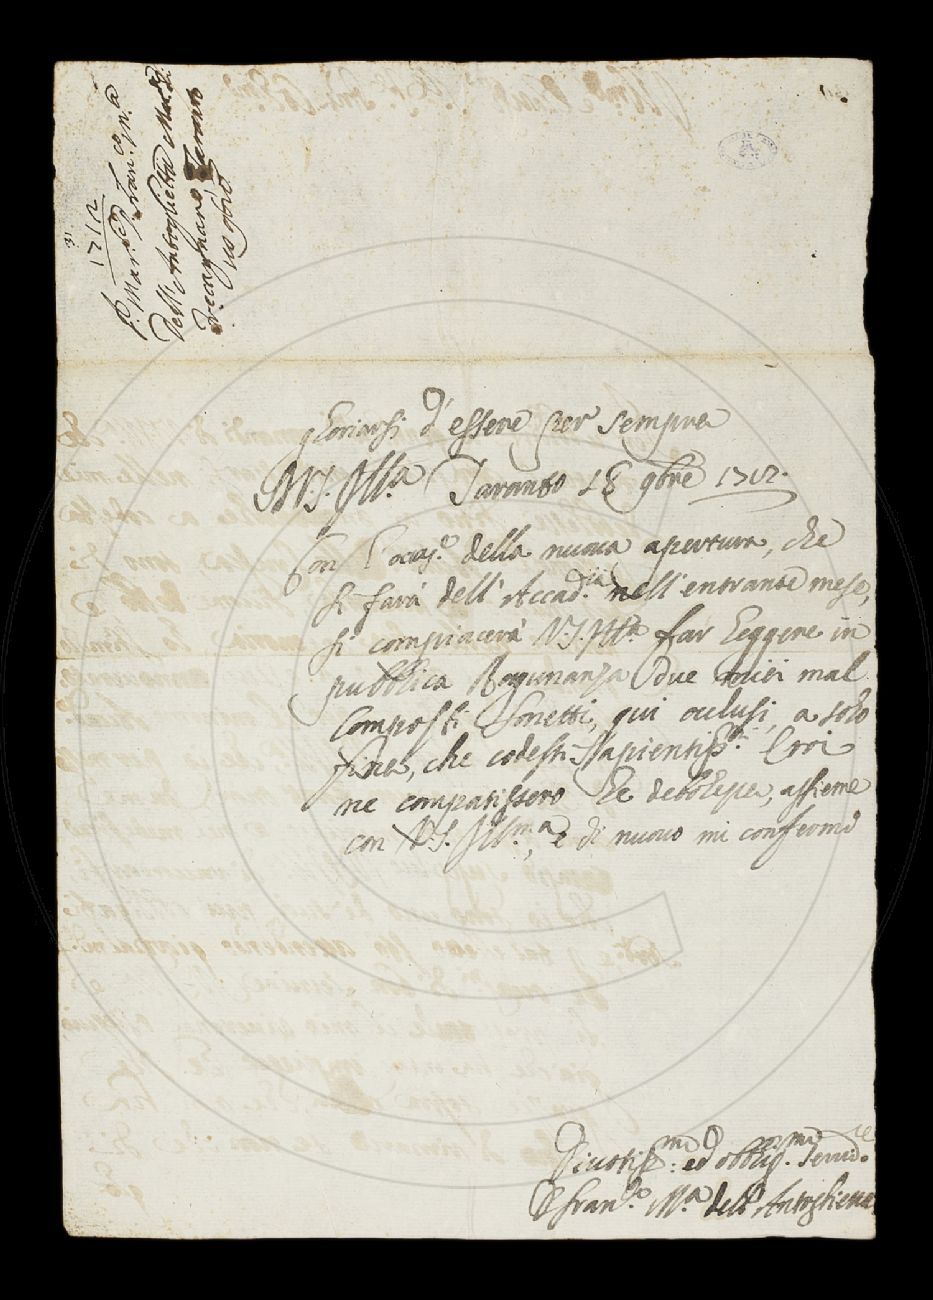 1712
P. Mar. D. Fran.co M.a
dell'Antoglietta March.
Taranto
gloriarsi d'essere per sempre
V.S. Ill.a Taranto 18 9bre 1712.
Con l'occaş.e della nuova apertura, che
si farà dell'Accad.ia nell'entrante mese,
si compiacerà V.S. Ill.a far leggere in
pubblica Ragunanza due miei mal
composti Sonetti, qui inclusi, a solo
fine, che codesti Sapientiss.mi Eroi
ne compatissero le debolezze, assieme
con V.S. Ill.ma, e di nuovo mi confermo
Divotiss.mo ed obblig.mo Servid.re
D. Fran.co M.a dell'Antoglietta